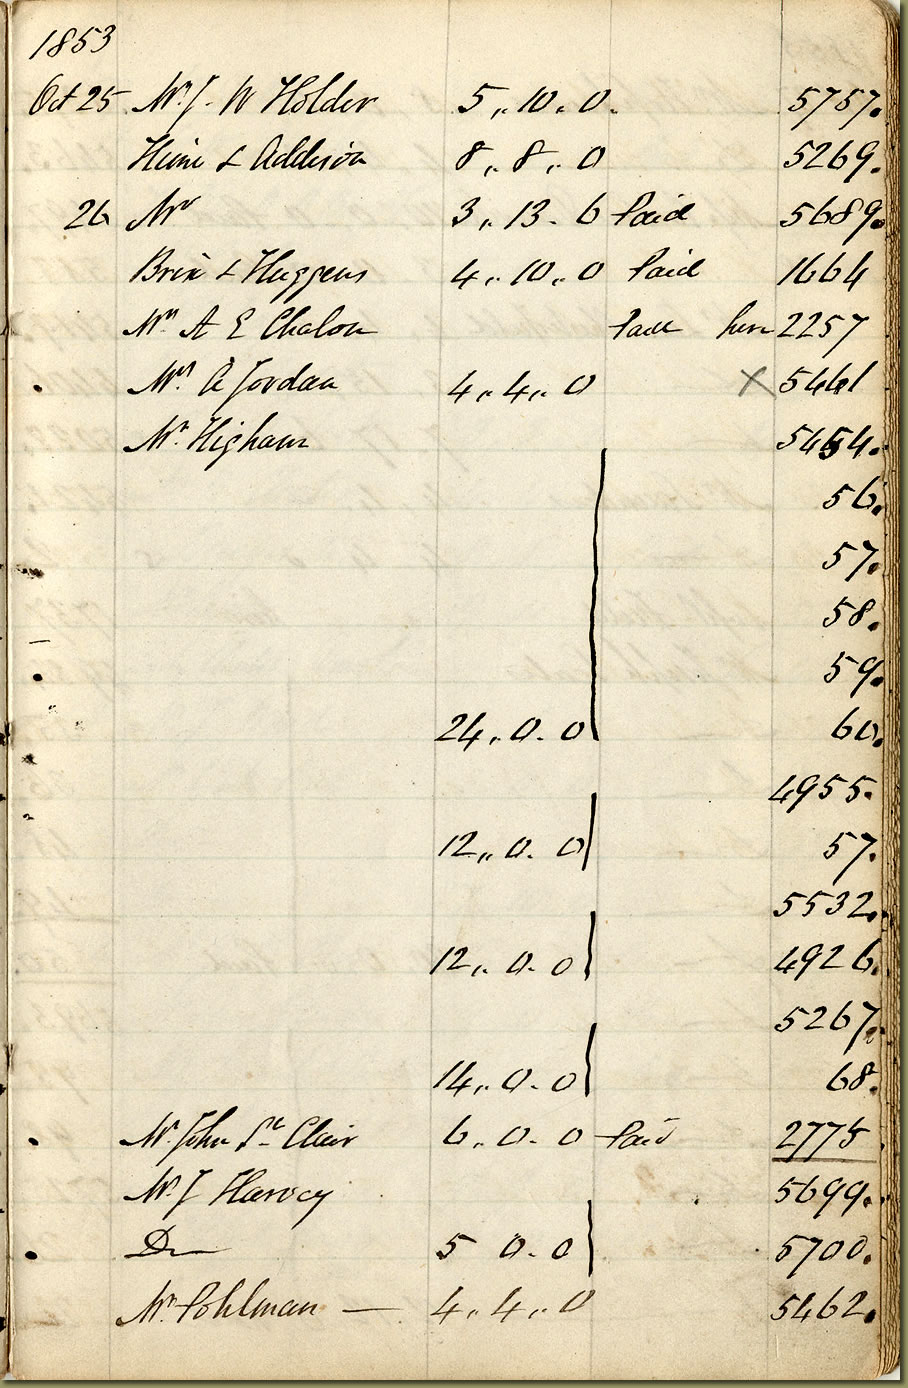 1853
Oct 25 Mr. J. W Holder 5 ,, 10 ,, 0. 5757.
Hime & Addison 8 ,, 8 ,, 0 5269.
26 Mr 3 ,, 13 - 6 Paid 5689.
Brix & Huggens 4 ,, 10 ,, 0 Paid 1664
Mr. A E Chalon hire 2257
A Jordan 4 ,, 4 ,, 0 X 5461
Mr. Higham 5454.
56.
57.
58.
59.
24 ,, 0 - 0 60.
4955.
12 ,, 0 - 0 57.
5532.
12 ,, 0 - 0 4926.
5267.
14 ,, 0 - 0 68.
Mr. John St. Clair 6 ,, 0 - 0 Paid 2775
Mr. J Harvey 5699.
Do 5 0 - 0 5700.
Mr. Pohlman — 4 ,, 4 ,, 0 5462.